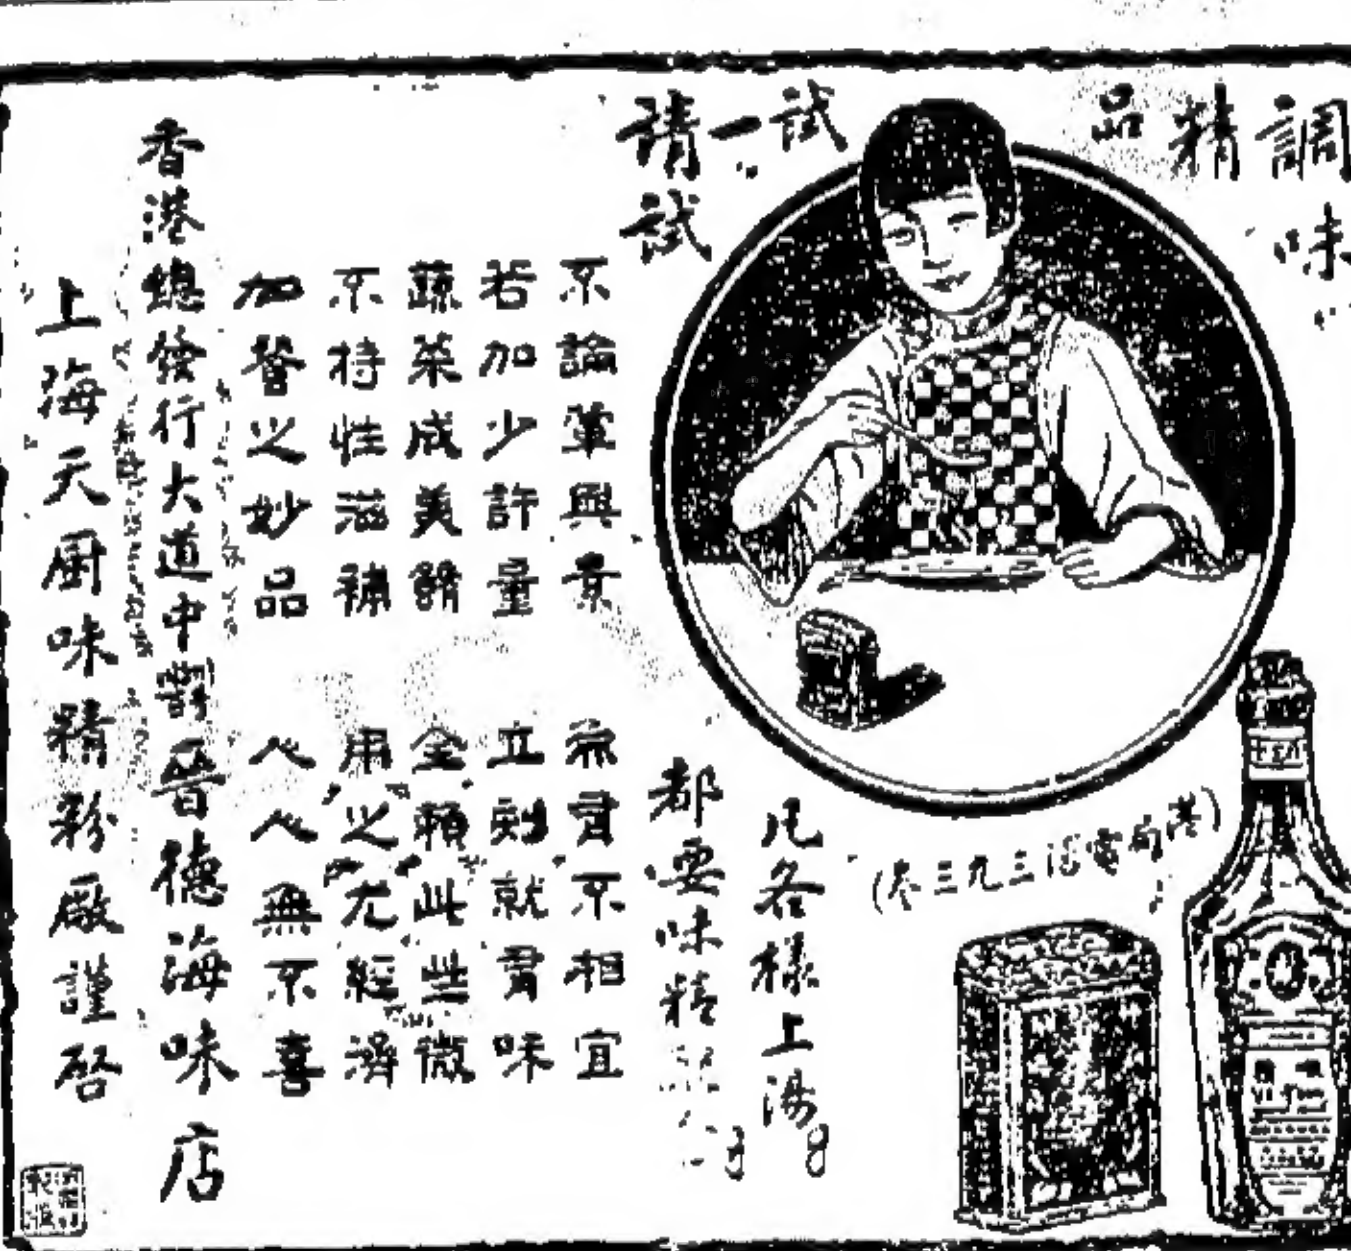 調味精品
請試一試
凡各樣上湯
都要味精
不論葷與素
有不相宜
若加少許量
立刻就有味
蔬菜成美餚
全賴此些微
不特性滋補
用之尤經濟
加餐之妙品
人人無不喜
香港總發行大道中晉德海味店
上海天廚味精粉廠謹啓